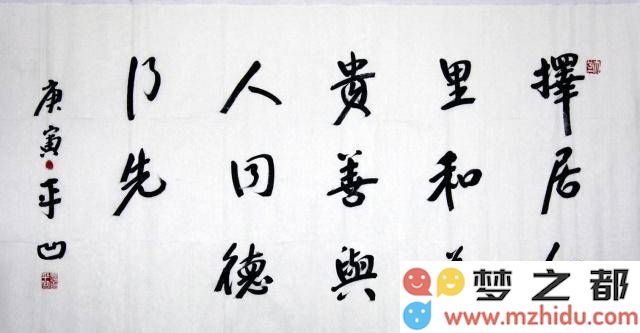 擇居
里和
貴善與
人同德
行先
庚寅平凹
梦之都
www.mzhidu.com